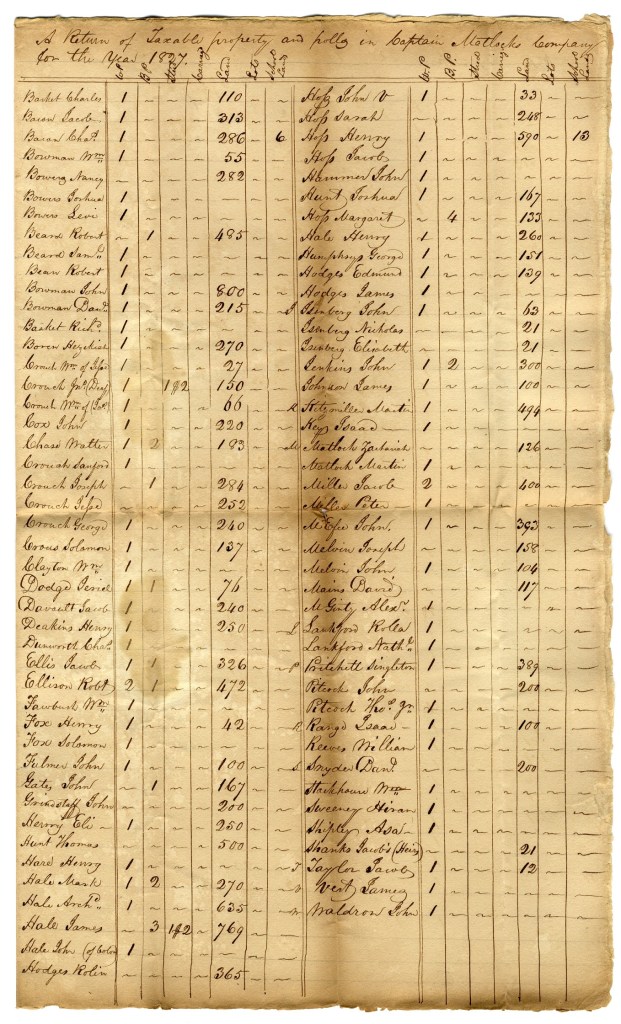 A Return of Taxable property and polls in Captain Matlocks Company
for the Year 1827.
W.P. B.P. Stud Carriage Land Lots School Land
W.P. B.P. Stud Carriage Land Lots School Land
Basket Charles 1 ~ ~ ~ 110 ~ ~
Bacan Jacob 1 ~ ~ ~ 313 ~ ~
Bacan Chas. 1 ~ ~ ~ 286 ~ 6
Bowman Wm 1 ~ ~ ~ 55 ~ ~
Bowers Nancy ~ ~ ~ ~ 282 ~ ~
Bowers Joshua 1
Bowers Levi 1 ~ ~ ~ ~ ~ ~
Beard Robert ~ 1 ~ ~ 485 ~ ~
Beard Saml. 1 ~ ~ ~ ~ ~ ~
Bean Robert 1 ~ ~ ~ ~ ~ ~
Bowman John 1 ~ ~ ~ 800 ~ ~
Bowman Danl. 1 ~ ~ ~ 215 ~ ~
Basket Richd. 1 ~ ~ ~ ~ ~ ~
Boren Hezekiah 1 ~ ~ ~ 270 ~ ~
Crouch Wm of Jesse 1 ~ ~ ~ 27 ~ ~
Crouch Jno. 1 ~ 1$2 ~ 150 ~ ~
Crouch Wm of 1 ~ ~ ~ 66 ~ ~
Cox John 1 ~ ~ ~ 220 ~ ~
Chase Walter 1 2 ~ ~ 183 ~ ~
Crouch Sanford 1 ~ ~ ~ ~ ~ ~
Crouch Joseph ~ 1 ~ ~ 284 ~ ~
Crouch Jesse ~ ~ ~ ~ 252 ~ ~
Crouch George 1 ~ ~ ~ 240 ~ ~
Crous Solomon 1 ~ ~ ~ 137 ~ ~
Clayton Wm 1 ~ ~ ~ ~ ~ ~
Dodge Jeriel 1 1 ~ ~ 76 ~ ~
Davault Jacob 1 ~ ~ ~ 240 ~ ~
Deakins Henry 1 ~ ~ ~ 250 ~ ~
Dunworth Chas. 1 ~ ~ ~ ~ ~ ~
Ellis Jacob 1 1 ~ ~ 326 ~ ~
Ellison Robt 2 1 ~ ~ 472 ~ ~
Fawbush Wm 1 ~ ~ ~ ~ ~ ~
Fox Henry 1 ~ ~ ~ 42 ~ ~
Fox Solomon 1 ~ ~ ~ ~ ~ ~
Fulmer John 1 ~ ~ ~ 100 ~ ~
Gates John ~ 1 ~ ~ 167 ~ ~
Grindstaff John ~ ~ ~ ~ 200 ~ ~
Henry Eli 1 ~ ~ ~ 250 ~ ~
Hunt Thomas ~ ~ ~ 500 ~ ~
Hare Henry 1 ~ ~ ~ ~ ~ ~
Hale Mark 1 2 ~ ~ 270 ~ ~
Hale Archd. 1 ~ ~ ~ 635 ~ ~
Hale James ~ 3 1$2 ~ 769 ~ ~
Hale John (of Colo) 1
Hodges Rolin ~ ~ ~ ~ 365 ~ ~
Hoss John V 1 ~ ~ ~ 33 ~ ~
Hoss Sarah ~ ~ ~ ~ 248 ~ ~
Hoss Henry 1 ~ ~ ~ 590 ~ 13
Hoss Jacob 1 ~ ~ ~ ~ ~ ~
Hammer John 1 ~ ~ ~ ~ ~ ~
Hunt Joshua 1 ~ ~ ~ 167 ~ ~
Hoss Margaret ~ 4 ~ ~ 133 ~ ~
Hale Henry 1 ~ ~ ~ 260 ~ ~
Humphreys George 1 ~ ~ ~ 151 ~ ~
Hodges Edmund 1 ~ ~ ~ 139 ~ ~
Hodges James 1 ~ ~ ~ ~ ~ ~
I Isenberg John 1 ~ ~ ~ 63 ~ ~
Isenberg Nicholas ~ ~ ~ ~ 21 ~ ~
Isenberg Elizabeth ~ ~ ~ ~ 21 ~ ~
Jenkins John 1 2 ~ ~ 300 ~ ~
Johnson James 1 ~ ~ ~ 100 ~ ~
K Kitzmiller Martin 1 ~ ~ ~ 494 ~ ~
Keys Isaac 1 ~ ~ ~ ~ ~ ~
M Matlock Zachariah ~ ~ ~ ~ 126 ~ ~
Matlock Martin 1 ~ ~ ~ ~ ~ ~
Miller Jacob 2 ~ ~ ~ 400 ~ ~
Miller Peter 1 ~ ~ ~ ~ ~ ~
McGee John 1 ~ ~ ~ 393 ~ ~
Melvin Joseph ~ ~ ~ ~ 158 ~ ~
Melvin John 1 ~ ~ ~ 104 ~ ~
Mains David ~ ~ ~ ~ 117 ~ ~
McGinty Alexr. 1 ~ ~ ~ ~ ~ ~
L Lankford Rolla 1 ~ ~ ~ ~ ~ ~
Lankford Nathl. 1 ~ ~ ~ ~ ~ ~
P Pritchett Singleton 1 ~ ~ ~ 389 ~ ~
Pitcock John ~ ~ ~ ~ 200 ~ ~
Pitcock Thos. Jr 1 ~ ~ ~ ~ ~ ~
R Range Isaac 1 ~ ~ ~ 100 ~ ~
Reeves William 1 ~ ~ ~ ~ ~ ~
S Snyder Danl. ~ ~ ~ ~ 200 ~ ~
Stackhouse Wm 1 ~ ~ ~ ~ ~ ~
Sweeney Hiram 1 ~ ~ ~ ~ ~ ~
Shipley Asa 1 ~ ~ ~ ~ ~ ~
Shanks Jacob's (Heirs) ~ ~ ~ ~ 21 ~ ~
T Taylor Jacob 1 ~ ~ ~ 12 ~ ~
V Vest James 1 ~ ~ ~ ~ ~ ~
W Waldron John 1 ~ ~ ~ ~ ~ ~